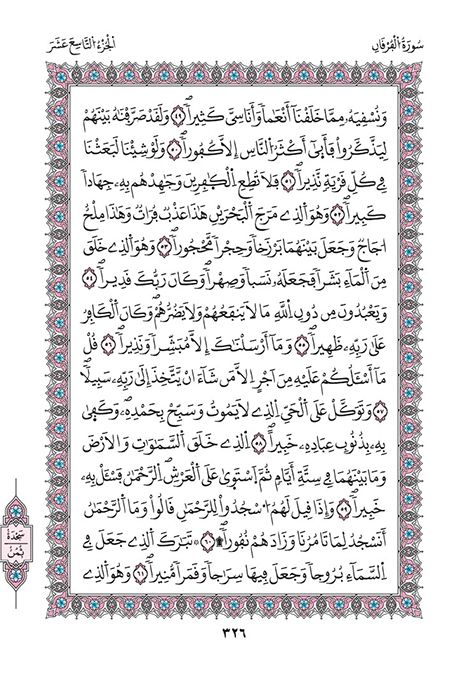 سُورَةُ الْفُرْقَانِ
الْجُزْءُ التَّاسِعَ عَشَرَ
وَنُسْقِيَهُۥ مِمَّا خَلَقْنَآ أَنْعَٰماً وَأَنَاسِيَّ كَثِيراً ٤٩ وَلَقَدْ صَرَّفْنَٰهُ بَيْنَهُمْ
لِيَذَّكَّرُواْ فَأَبَىٰٓ أَكْثَرُ النَّاسِ إِلَّا كُفُوراً ٥٠ وَلَوْ شِئْنَا لَبَعَثْنَا
فِے كُلِّ قَرْيَةٍ نَّذِيراً ٥١ فَلَا تُطِعِ الْكَٰفِرِينَ وَجَٰهِدْهُم بِهِۦ جِهَاداً
كَبِيراً ٥٢ وَهُوَ الذِے مَرَجَ الْبَحْرَيْنِ هَٰذَا عَذْبٌ فُرَاتٌ وَهَٰذَا مِلْحٌ
اجَاجٌ وَجَعَلَ بَيْنَهُمَا بَرْزَخاً وَحِجْراً مَّحْجُوراً ٥٣ وَهُوَ الذِے خَلَقَ
مِنَ الْمَآءِ بَشَراً فَجَعَلَهُۥ نَسَباً وَصِهْراً وَكَانَ رَبُّكَ قَدِيراً ٥٤
وَيَعْبُدُونَ مِن دُونِ اِللَّهِ مَا لَا يَنفَعُهُمْ وَلَا يَضُرُّهُمْ وَكَانَ الْكَافِرُ
عَلَىٰ رَبِّهِۦ ظَهِيراً ٥٥ وَمَآ أَرْسَلْنَٰكَ إِلَّا مُبَشِّراً وَنَذِيراً ٥٦ قُلْ
مَآ أَسْـَٔلُكُمْ عَلَيْهِ مِنَ اَجْرٍ اِلَّا مَن شَآءَ انْ يَّتَّخِذَ إِلَىٰ رَبِّهِۦ سَبِيلًا
٥٧ وَتَوَكَّلْ عَلَى الْحَيِّ الذِے لَا يَمُوتُ وَسَبِّحْ بِحَمْدِهِۦ وَكَفَىٰ
بِهِۦ بِذُنُوبِ عِبَادِهِۦ خَبِيراً ٥٨ اِلذِے خَلَقَ السَّمَٰوَٰتِ وَالَارْضَ
وَمَا بَيْنَهُمَا فِے سِتَّةِ أَيَّامٍ ثُمَّ اَسْتَوَىٰ عَلَى الْعَرْشِ الرَّحْمَٰنُ فَسْـَٔلْ بِهِۦ
خَبِيراً ٥٩ وَإِذَا قِيلَ لَهُمُ اسْجُدُواْ لِلرَّحْمَٰنِ قَالُواْ وَمَا الرَّحْمَٰنُ
أَنَسْجُدُ لِمَا تَامُرُنَا وَزَادَهُمْ نُفُوراً ۩ ٦٠ تَبَٰرَكَ الذِے جَعَلَ فِے
السَّمَآءِ بُرُوجاً وَجَعَلَ فِيهَا سِرَٰجاً وَقَمَراً مُّنِيراً ٦١ وَهُوَ الذِے
سَجْدَةٌ
ثُمُنٌ
٣٢٦